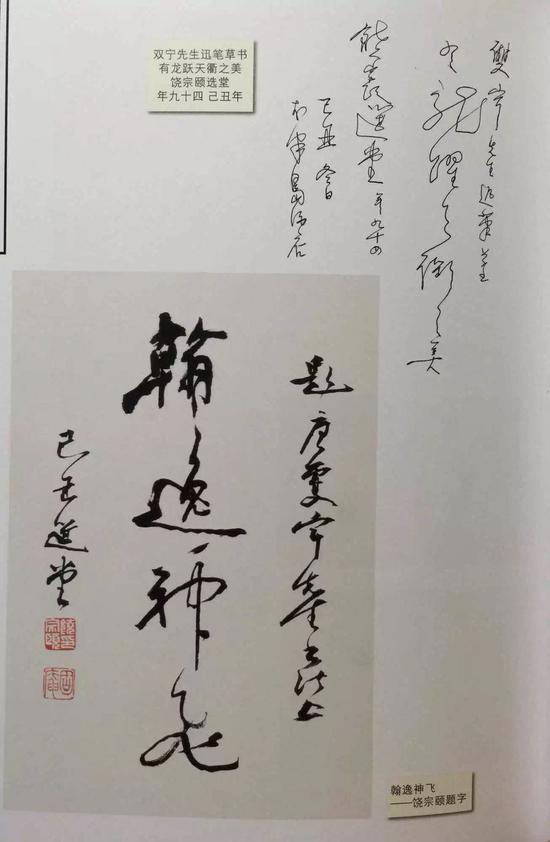 双宁先生迅笔草书
有龙跃天衢之美
饶宗颐选堂
年九十四 己丑年
雙寧先生迅筆草書
有龍躍天衢之美
饒宗頤選堂 年九十四
己丑 冬日
題唐雙寧先生書法
翰逸神飛
己丑選堂
翰逸神飞
——饶宗颐题字